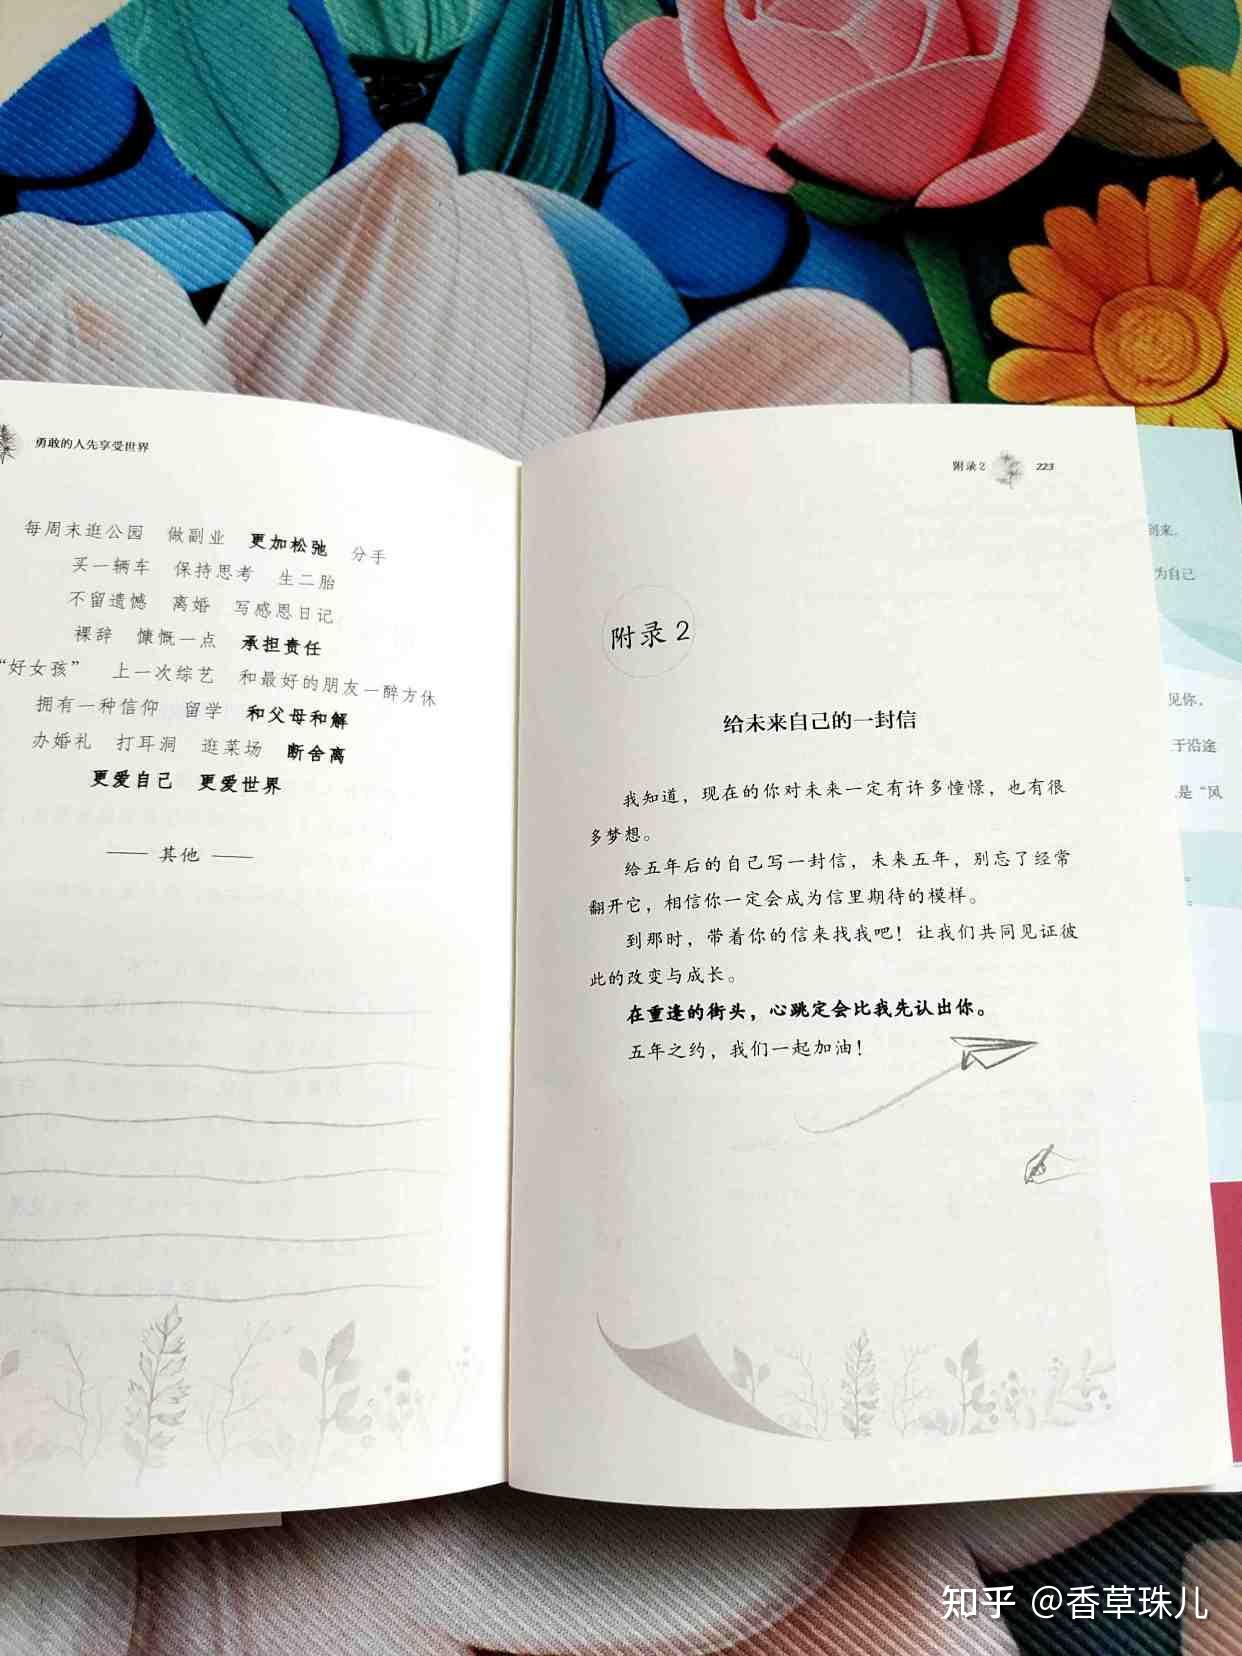 勇敢的人先享受世界
每周末逛公园 做副业 更加松弛 分手
买一辆车 保持思考 生二胎
不留遗憾 离婚 写感恩日记
裸辞 慷慨一点 承担责任
“好女孩” 上一次综艺 和最好的朋友一醉方休
拥有一种信仰 留学 和父母和解
办婚礼 打耳洞 逛菜场 断舍离
更爱自己 更爱世界
—— 其他 ——
附录2 223
附录2
给未来自己的一封信
我知道，现在的你对未来一定有许多憧憬，也有很
多梦想。
给五年后的自己写一封信，未来五年，别忘了经常
翻开它，相信你一定会成为信里期待的模样。
到那时，带着你的信来找我吧！让我们共同见证彼
此的改变与成长。
在重逢的街头，心跳定会比我先认出你。
五年之约，我们一起加油！
到来。
为自己
见你，
于沿途
是“风
知乎 @香草珠儿